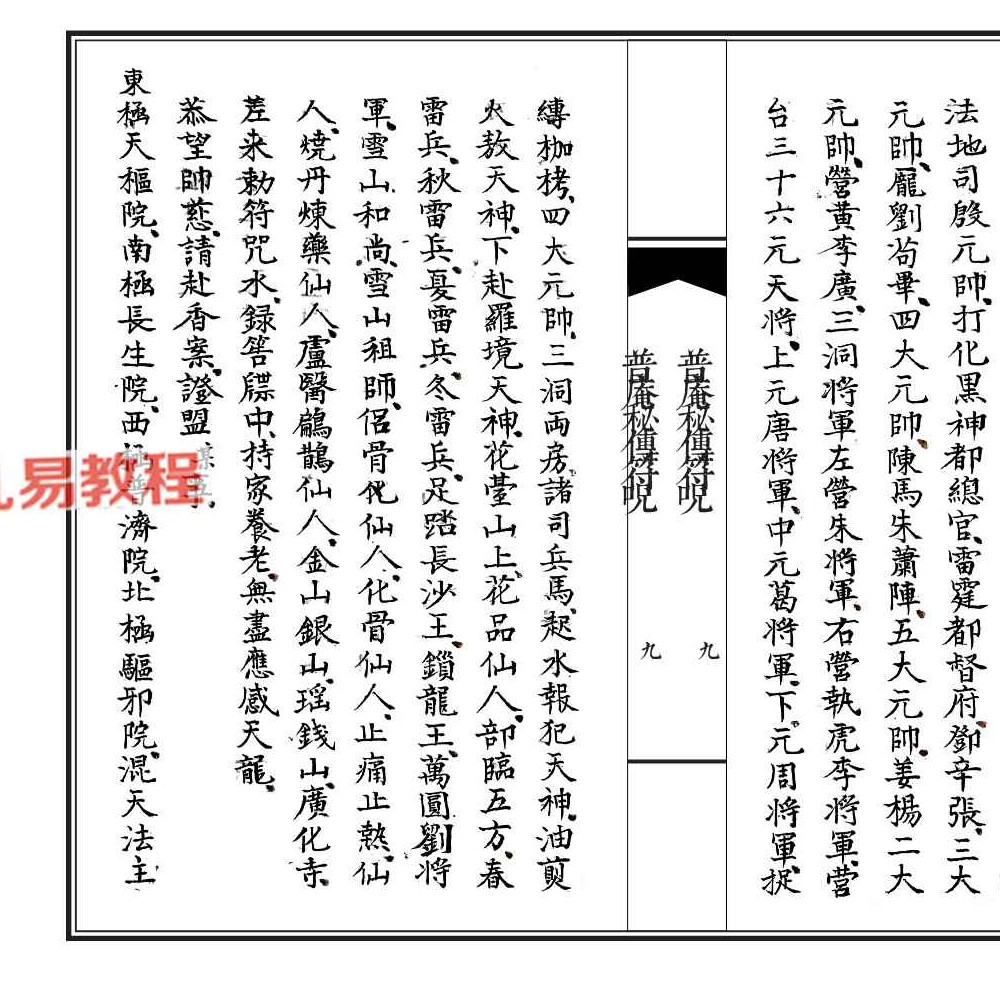 法地司殷元帥、打化黑神都總官、雷霆都督府、鄧辛張、三大
元帥、龐劉苟畢、四大元帥、陳馬朱蕭陣、五大元帥、姜楊二大
元帥、營黃李廣、三洞將軍左營朱將軍、右營執虎李將軍、营
台三十六元天將、上元唐將軍、中元葛將軍、下元周將軍、捉
普庵秘傳符呪
九
普庵秘傳符呪
九
縛枷栲、四大元帥、三洞両房諸司兵馬、起水報犯天神、油煎
火敖天神、下赴羅境天神、花臺山上、花品仙人、部臨五方、春
雷兵、秋雷兵、夏雷兵、冬雷兵、足踏長沙王、鎖龍王、萬圓劉將
軍、雪山和尚、雪山祖師、侣骨化仙人、化骨仙人、止痛止熱、仙
人、燒丹煉藥仙人、盧醫扁鵲仙人、金山銀山、瑶錢山、廣化寺、
差来勅符咒水、録答牒中、持家養老、無盡應感天龍、
恭望帥慈、請赴香案、證盟
東極天樞院、南極長生院、西極普濟院、北極驅邪院、混天法主
易教程